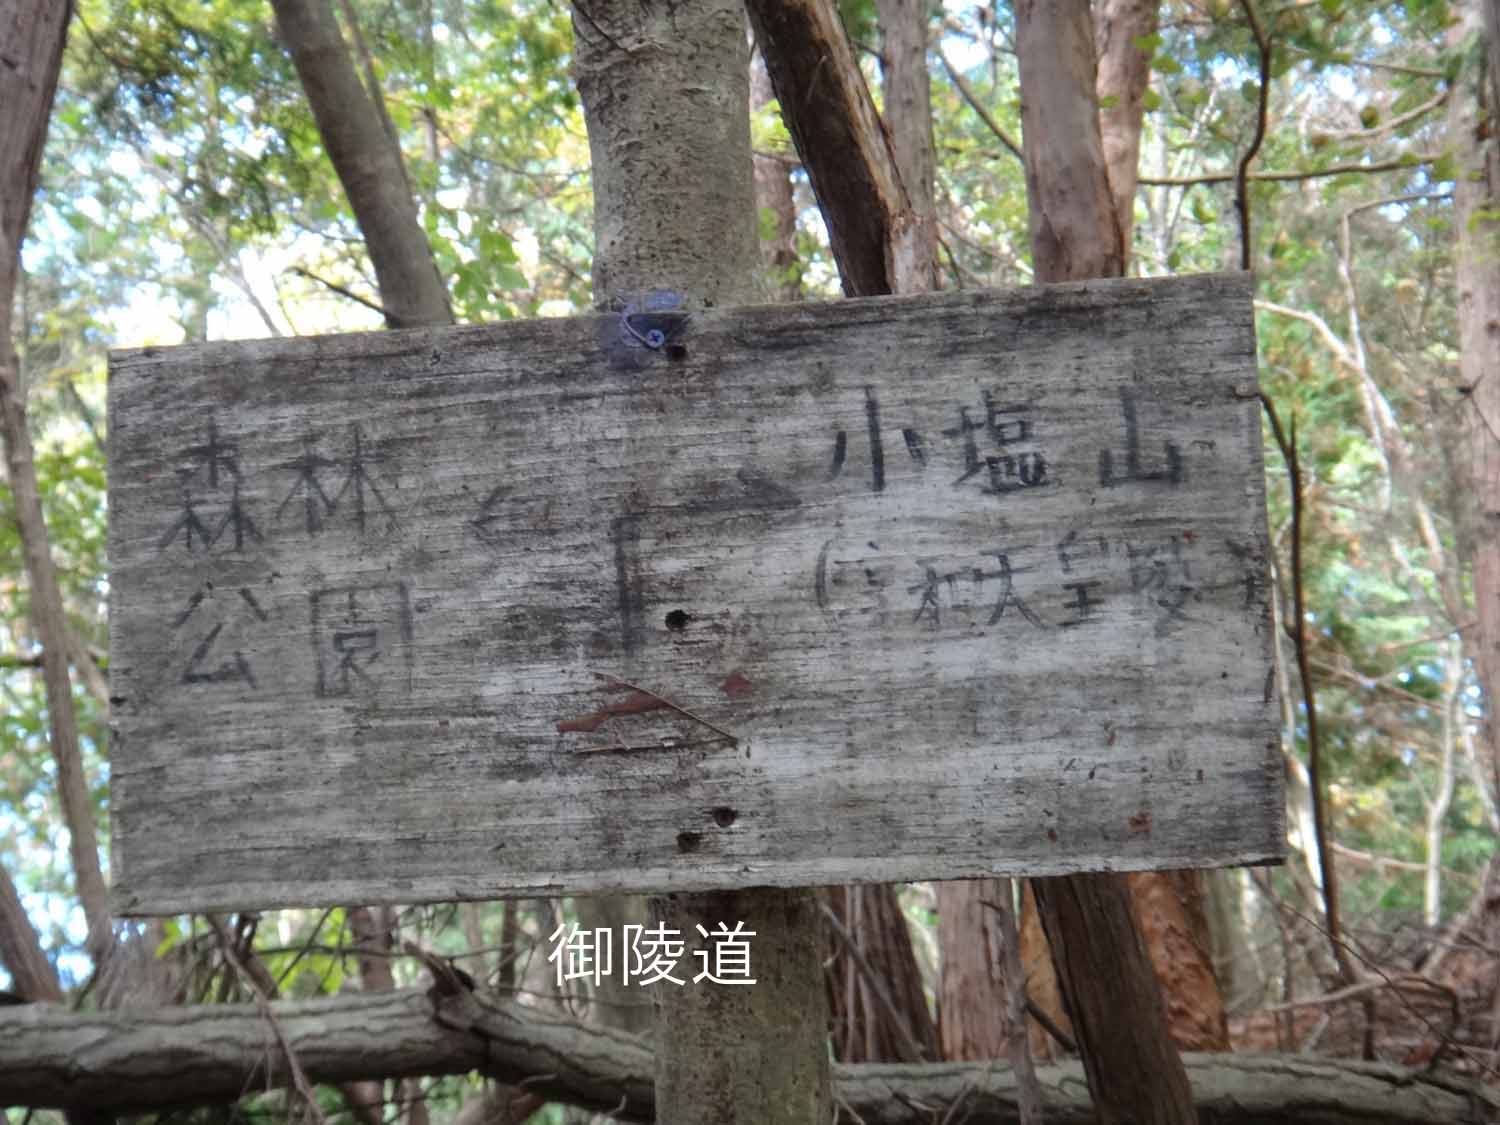 森林
公園
小塩山
(淳和天皇陵)
御陵道